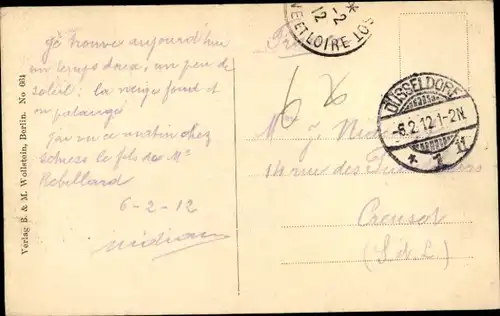 Je trouve aujourd'hui
un temps doux, un peu de
soleil; la neige fond et on
patauge
J'ai vu ce matin chez
le fils de Mr
Rebillard
6-2-12
Verlag B. & M. Wollstein, Berlin. No 664
NE ET LOIRE
-2
12
DÜSSELDORF
-6.2.12.1-2N.
* 1 n
6
Mme J.
14 rue des
Creusot
(S. & L.)